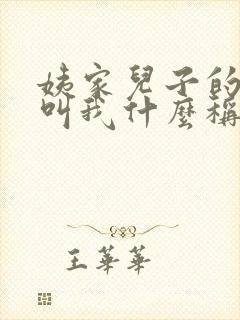 姨家兒子的
叫我什麼稱
王華華